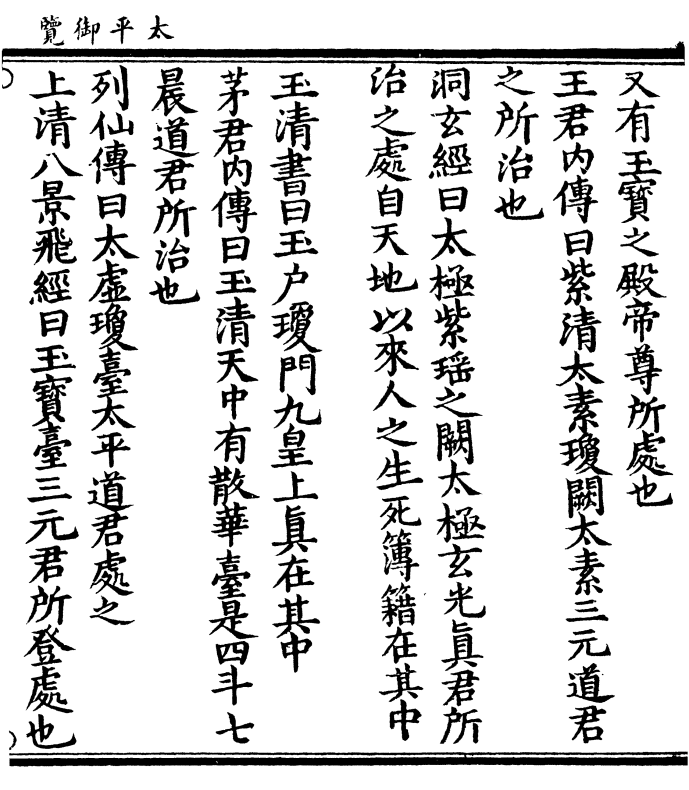 太平御覽
又有玉寶之殿帝尊所處也
王君內傳曰紫清太素瓊闕太素三元道君
之所治也
洞玄經曰太極紫瑶之闕太極玄光眞君所
治之處自天地以來人之生死簿籍在其中
玉清書曰玉户瓊門九皇上眞在其中
茅君内傳曰玉清天中有散華臺是四斗七
晨道君所治也
列仙傳曰太虛瓊臺太平道君處之
上清八景飛經曰玉寶臺三元君所登處也